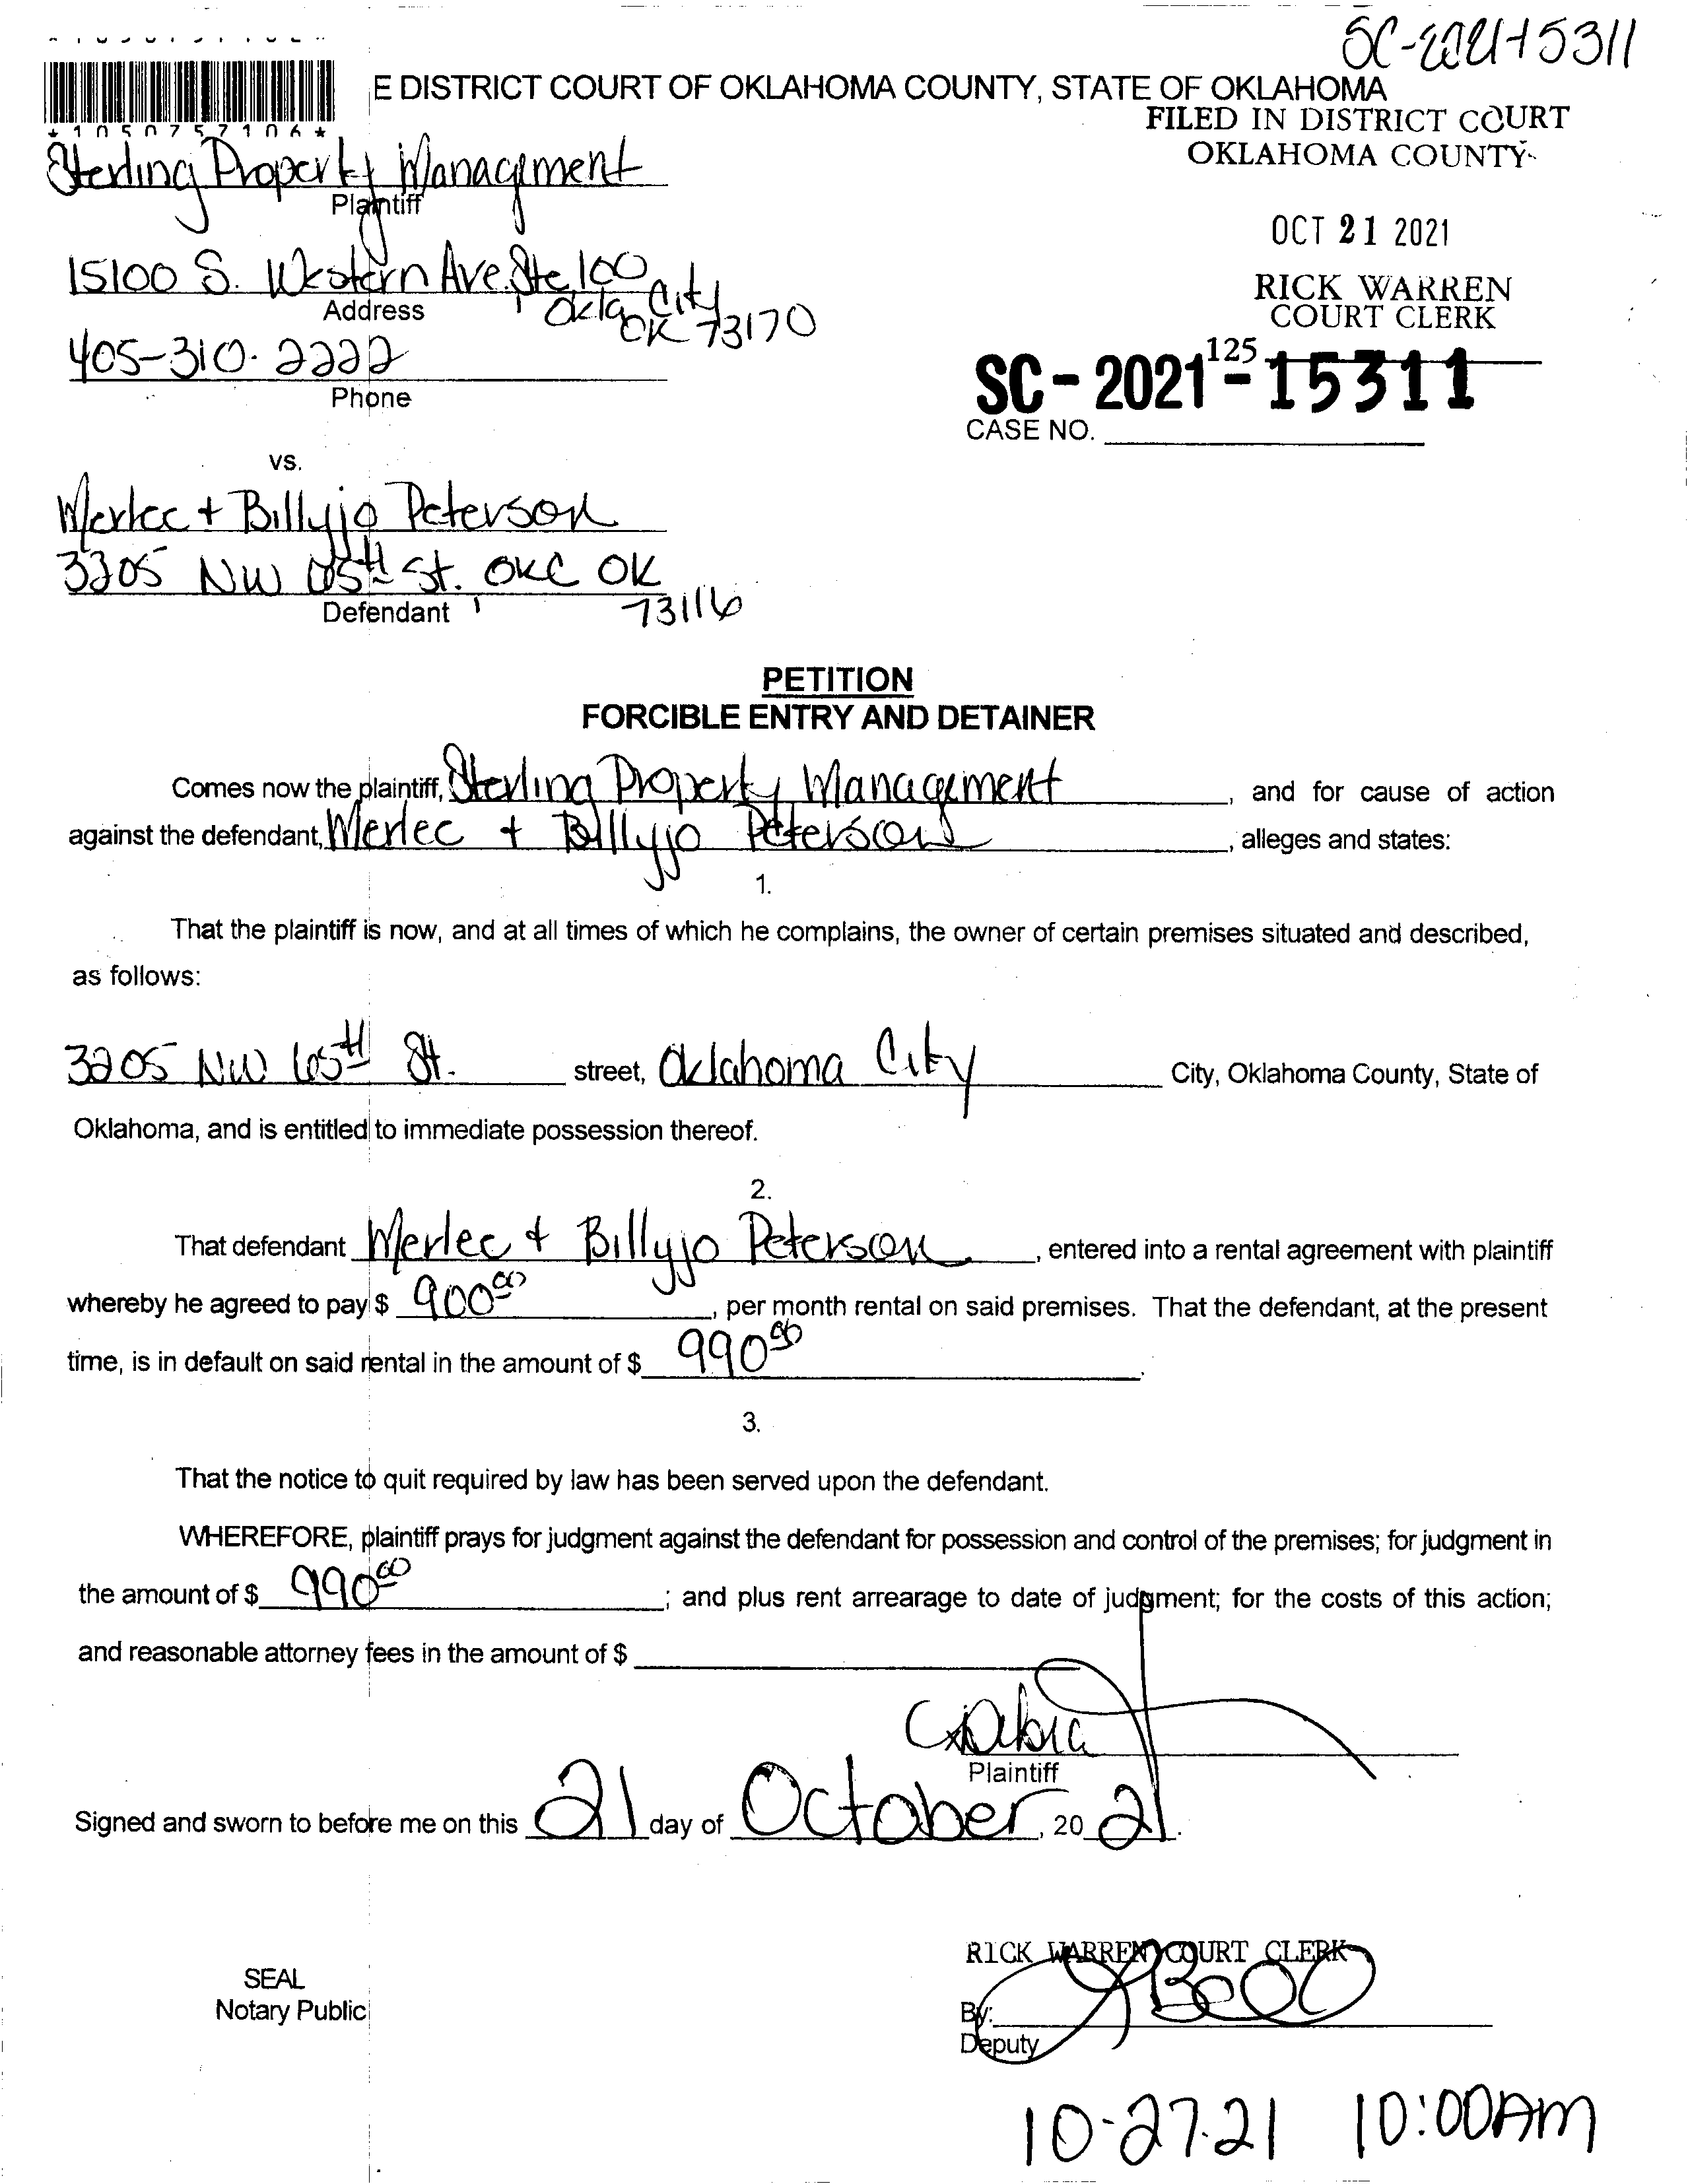 SC-2021-15311
E DISTRICT COURT OF OKLAHOMA COUNTY, STATE OF OKLAHOMA
*1050757106*
FILED IN DISTRICT COURT
OKLAHOMA COUNTY
Sterling Property Management
Plaintiff
OCT 21 2021
15100 S. Western Ave. Ste. 100
Address
Okla City
OK 73170
RICK WARREN
COURT CLERK
405-310-2222
Phone
125
SC-2021-15311
CASE NO.
vs.
Merlec + Billyjo Peterson
3205 NW 65th St. OKC OK
73116
Defendant
PETITION
FORCIBLE ENTRY AND DETAINER
Comes now the plaintiff, Sterling Property Management, and for cause of action
against the defendant, Merlec + Billyjo Peterson, alleges and states:
1.
That the plaintiff is now, and at all times of which he complains, the owner of certain premises situated and described,
as follows:
3205 NW 65th St. street, Oklahoma City City, Oklahoma County, State of
Oklahoma, and is entitled to immediate possession thereof.
2.
That defendant Merlec + Billyjo Peterson, entered into a rental agreement with plaintiff
whereby he agreed to pay $ 900.00, per month rental on said premises. That the defendant, at the present
time, is in default on said rental in the amount of $ 990.00.
3.
That the notice to quit required by law has been served upon the defendant.
WHEREFORE, plaintiff prays for judgment against the defendant for possession and control of the premises; for judgment in
the amount of $ 990.00; and plus rent arrearage to date of judgment; for the costs of this action;
and reasonable attorney fees in the amount of $
Plaintiff
Signed and sworn to before me on this 21 day of October, 20 21.
RICK WARREN COURT CLERK
SEAL
Notary Public
By:
Deputy
10-27-21 10:00AM